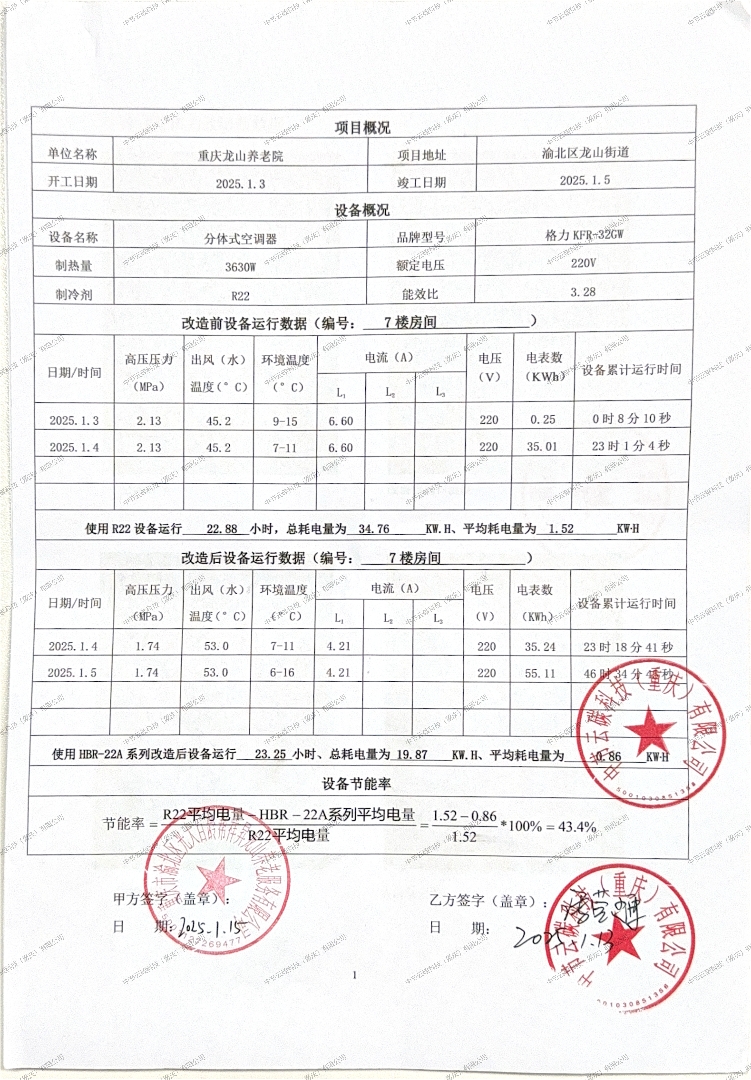 项目概况
单位名称 重庆龙山养老院 项目地址 渝北区龙山街道
开工日期 2025.1.3 竣工日期 2025.1.5
设备概况
设备名称 分体式空调器 品牌型号 格力 KFR-32GW
制热量 3630W 额定电压 220V
制冷剂 R22 能效比 3.28
改造前设备运行数据（编号： 7 楼房间 ）
日期/时间 高压压力（MPa） 出风（水）温度(°C) 环境温度(°C) 电流（A） 电压（V） 电表数（KWh） 设备累计运行时间
L₁ L₂ L₃
2025.1.3 2.13 45.2 9-15 6.60 220 0.25 0 时 8 分 10 秒
2025.1.4 2.13 45.2 7-11 6.60 220 35.01 23 时 1 分 4 秒
使用 R22 设备运行 22.88 小时，总耗电量为 34.76 KW.H、平均耗电量为 1.52 KW·H
改造后设备运行数据（编号： 7 楼房间 ）
日期/时间 高压压力（MPa） 出风（水）温度(°C) 环境温度(°C) 电流（A） 电压（V） 电表数（KWh） 设备累计运行时间
L₁ L₂ L₃
2025.1.4 1.74 53.0 7-11 4.21 220 35.24 23 时 18 分 41 秒
2025.1.5 1.74 53.0 6-16 4.21 220 55.11 46 时 34 分 秒
使用 HBR-22A 系列改造后设备运行 23.25 小时、总耗电量为 19.87 KW.H、平均耗电量为 0.86 KW·H
设备节能率
节能率 = (R22平均电量 − HBR − 22A系列平均电量) / R22平均电量 = (1.52 − 0.86) / 1.52 *100% = 43.4%
甲方签字（盖章）： 乙方签字（盖章）：
日 期: 2025.1.15 日 期: 2025.1.13
中节云碳科技（重庆）有限公司
5001030851358
中节云碳科技（重庆）有限公司
1